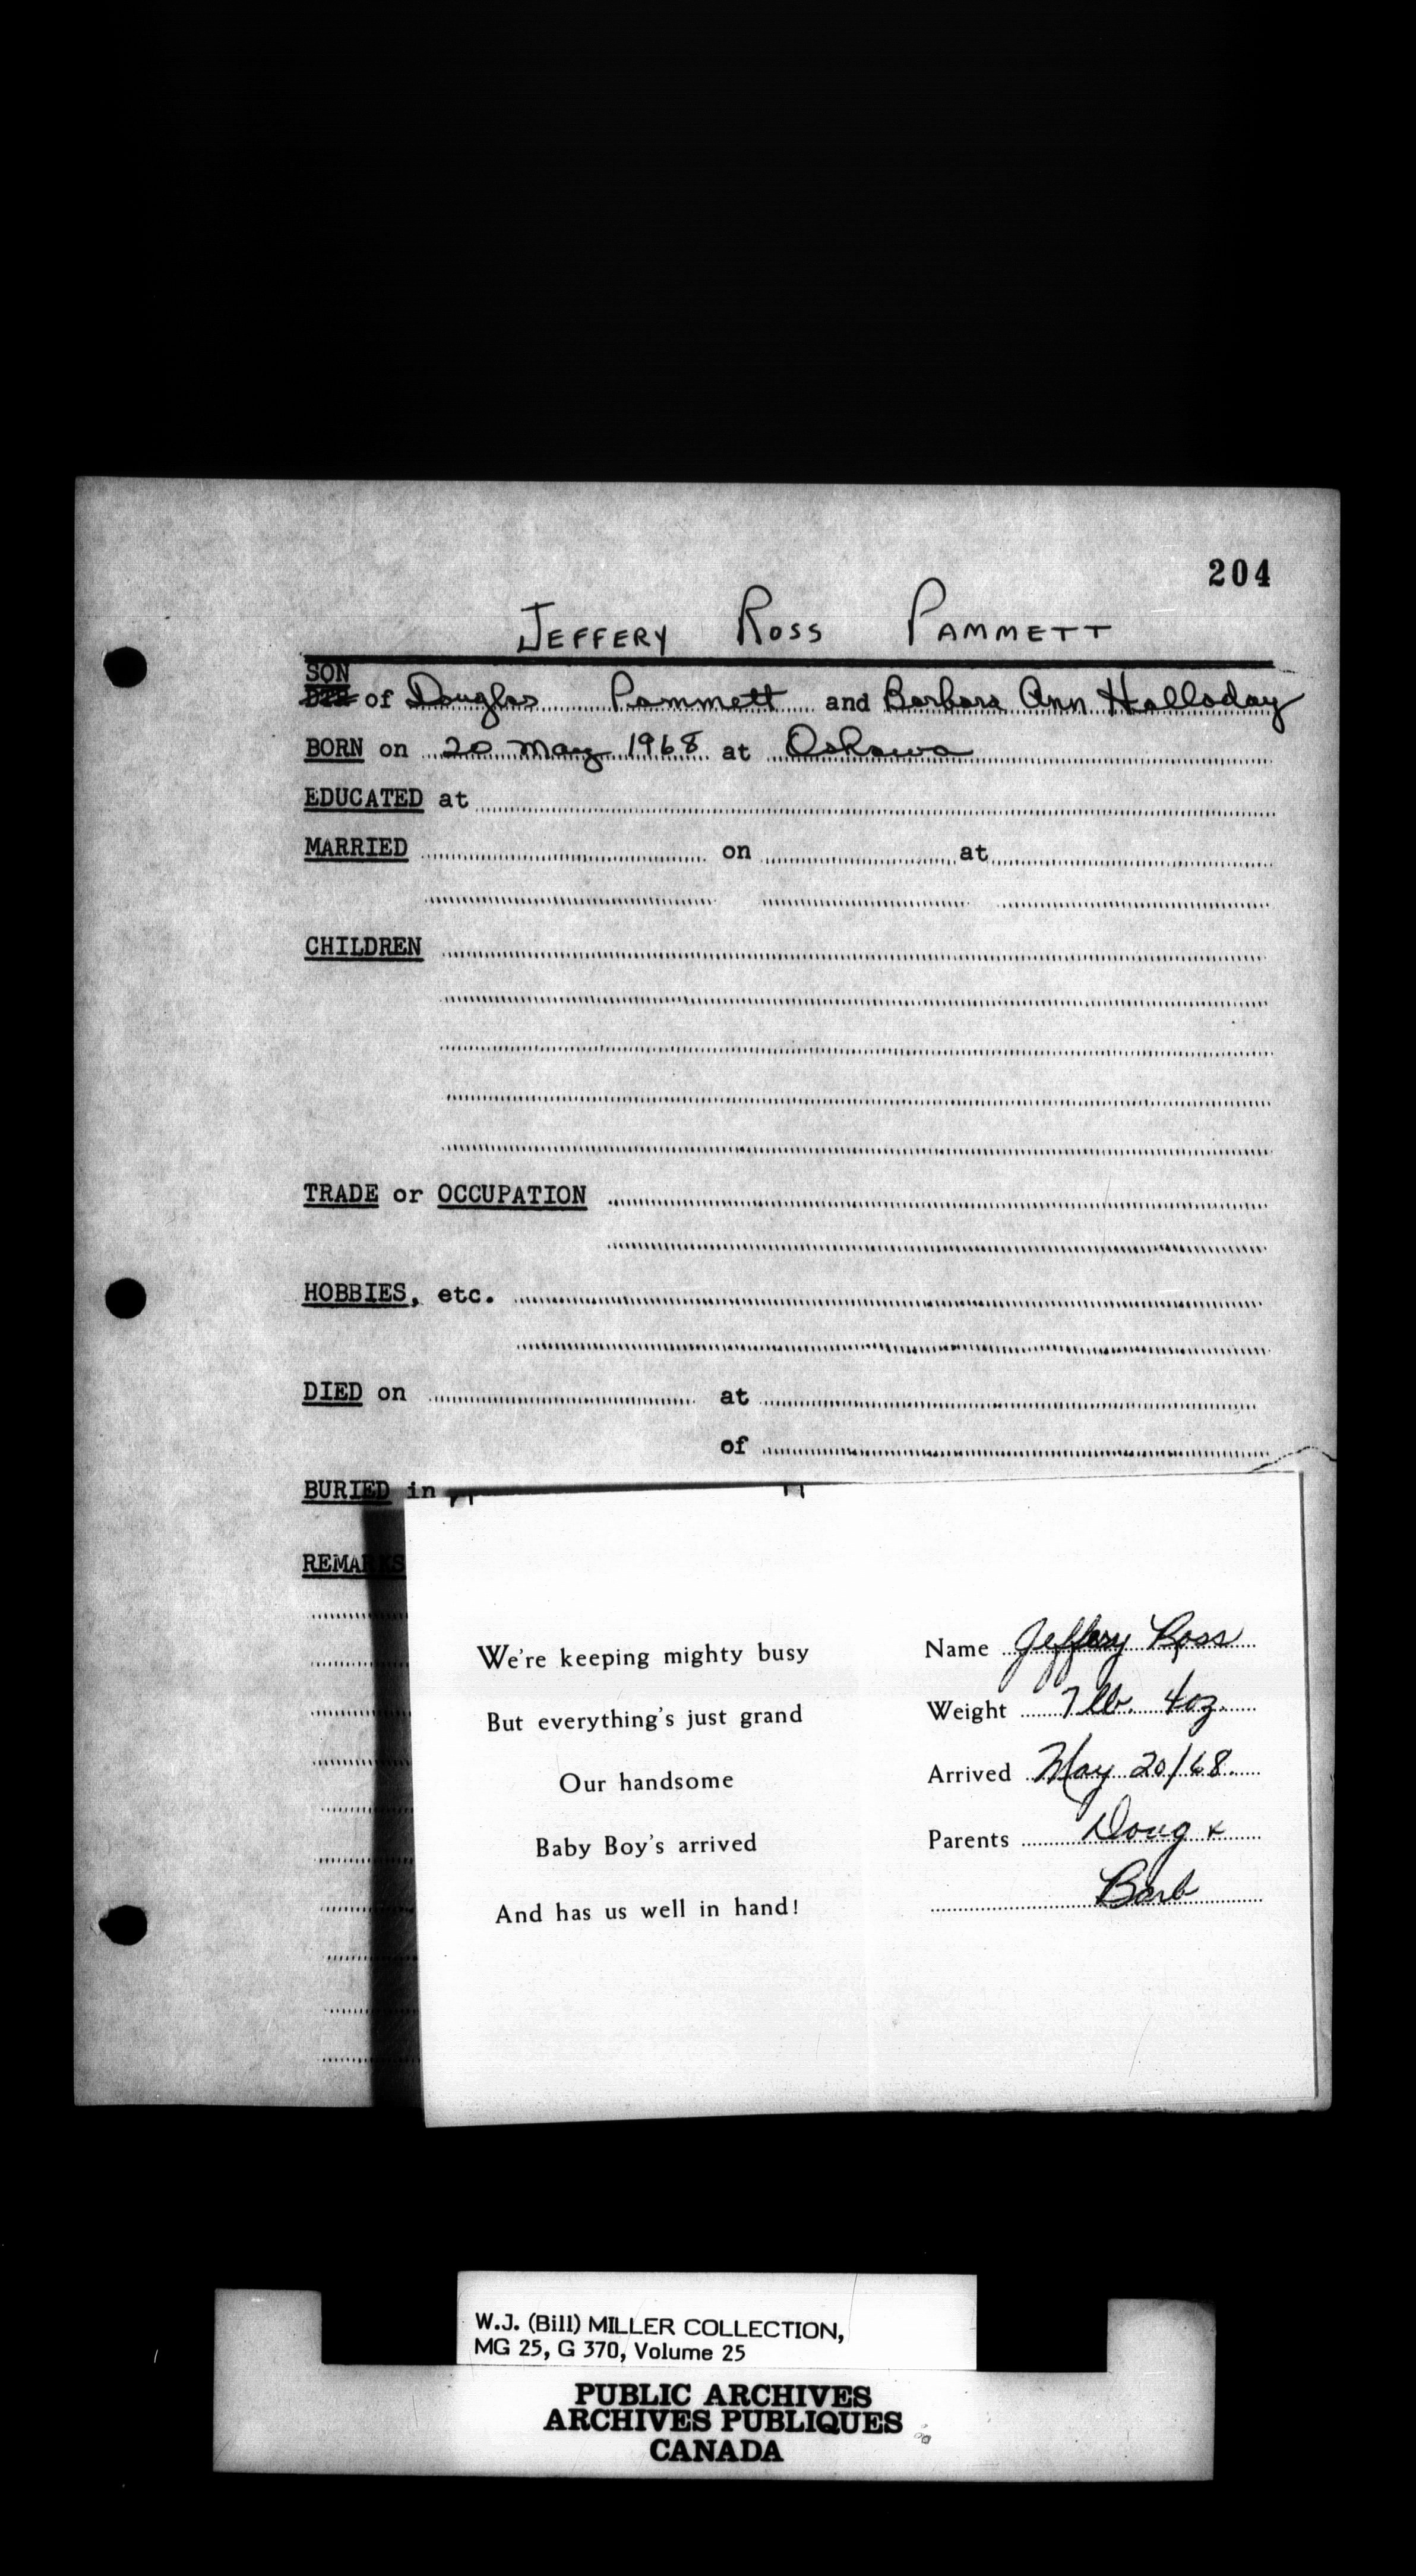 204
JEFFERY ROSS PAMMETT
SON
of Douglas Pammett and Barbara Ann Halloday
BORN on 20 May 1968 at Oshawa
EDUCATED at
MARRIED on at
CHILDREN
TRADE or OCCUPATION
HOBBIES, etc.
DIED on at
of
BURIED in
REMARKS
We're keeping mighty busy
But everything's just grand
Our handsome
Baby Boy's arrived
And has us well in hand!
Name Jeffery Ross
Weight 7 lb. 4 oz.
Arrived May 20/68
Parents Doug &
Barb
W.J. (Bill) MILLER COLLECTION,
MG 25, G 370, Volume 25
PUBLIC ARCHIVES
ARCHIVES PUBLIQUES
CANADA